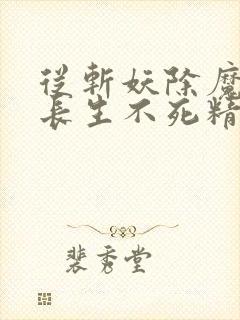 從斬妖除魔
長生不死精
裴秀堂